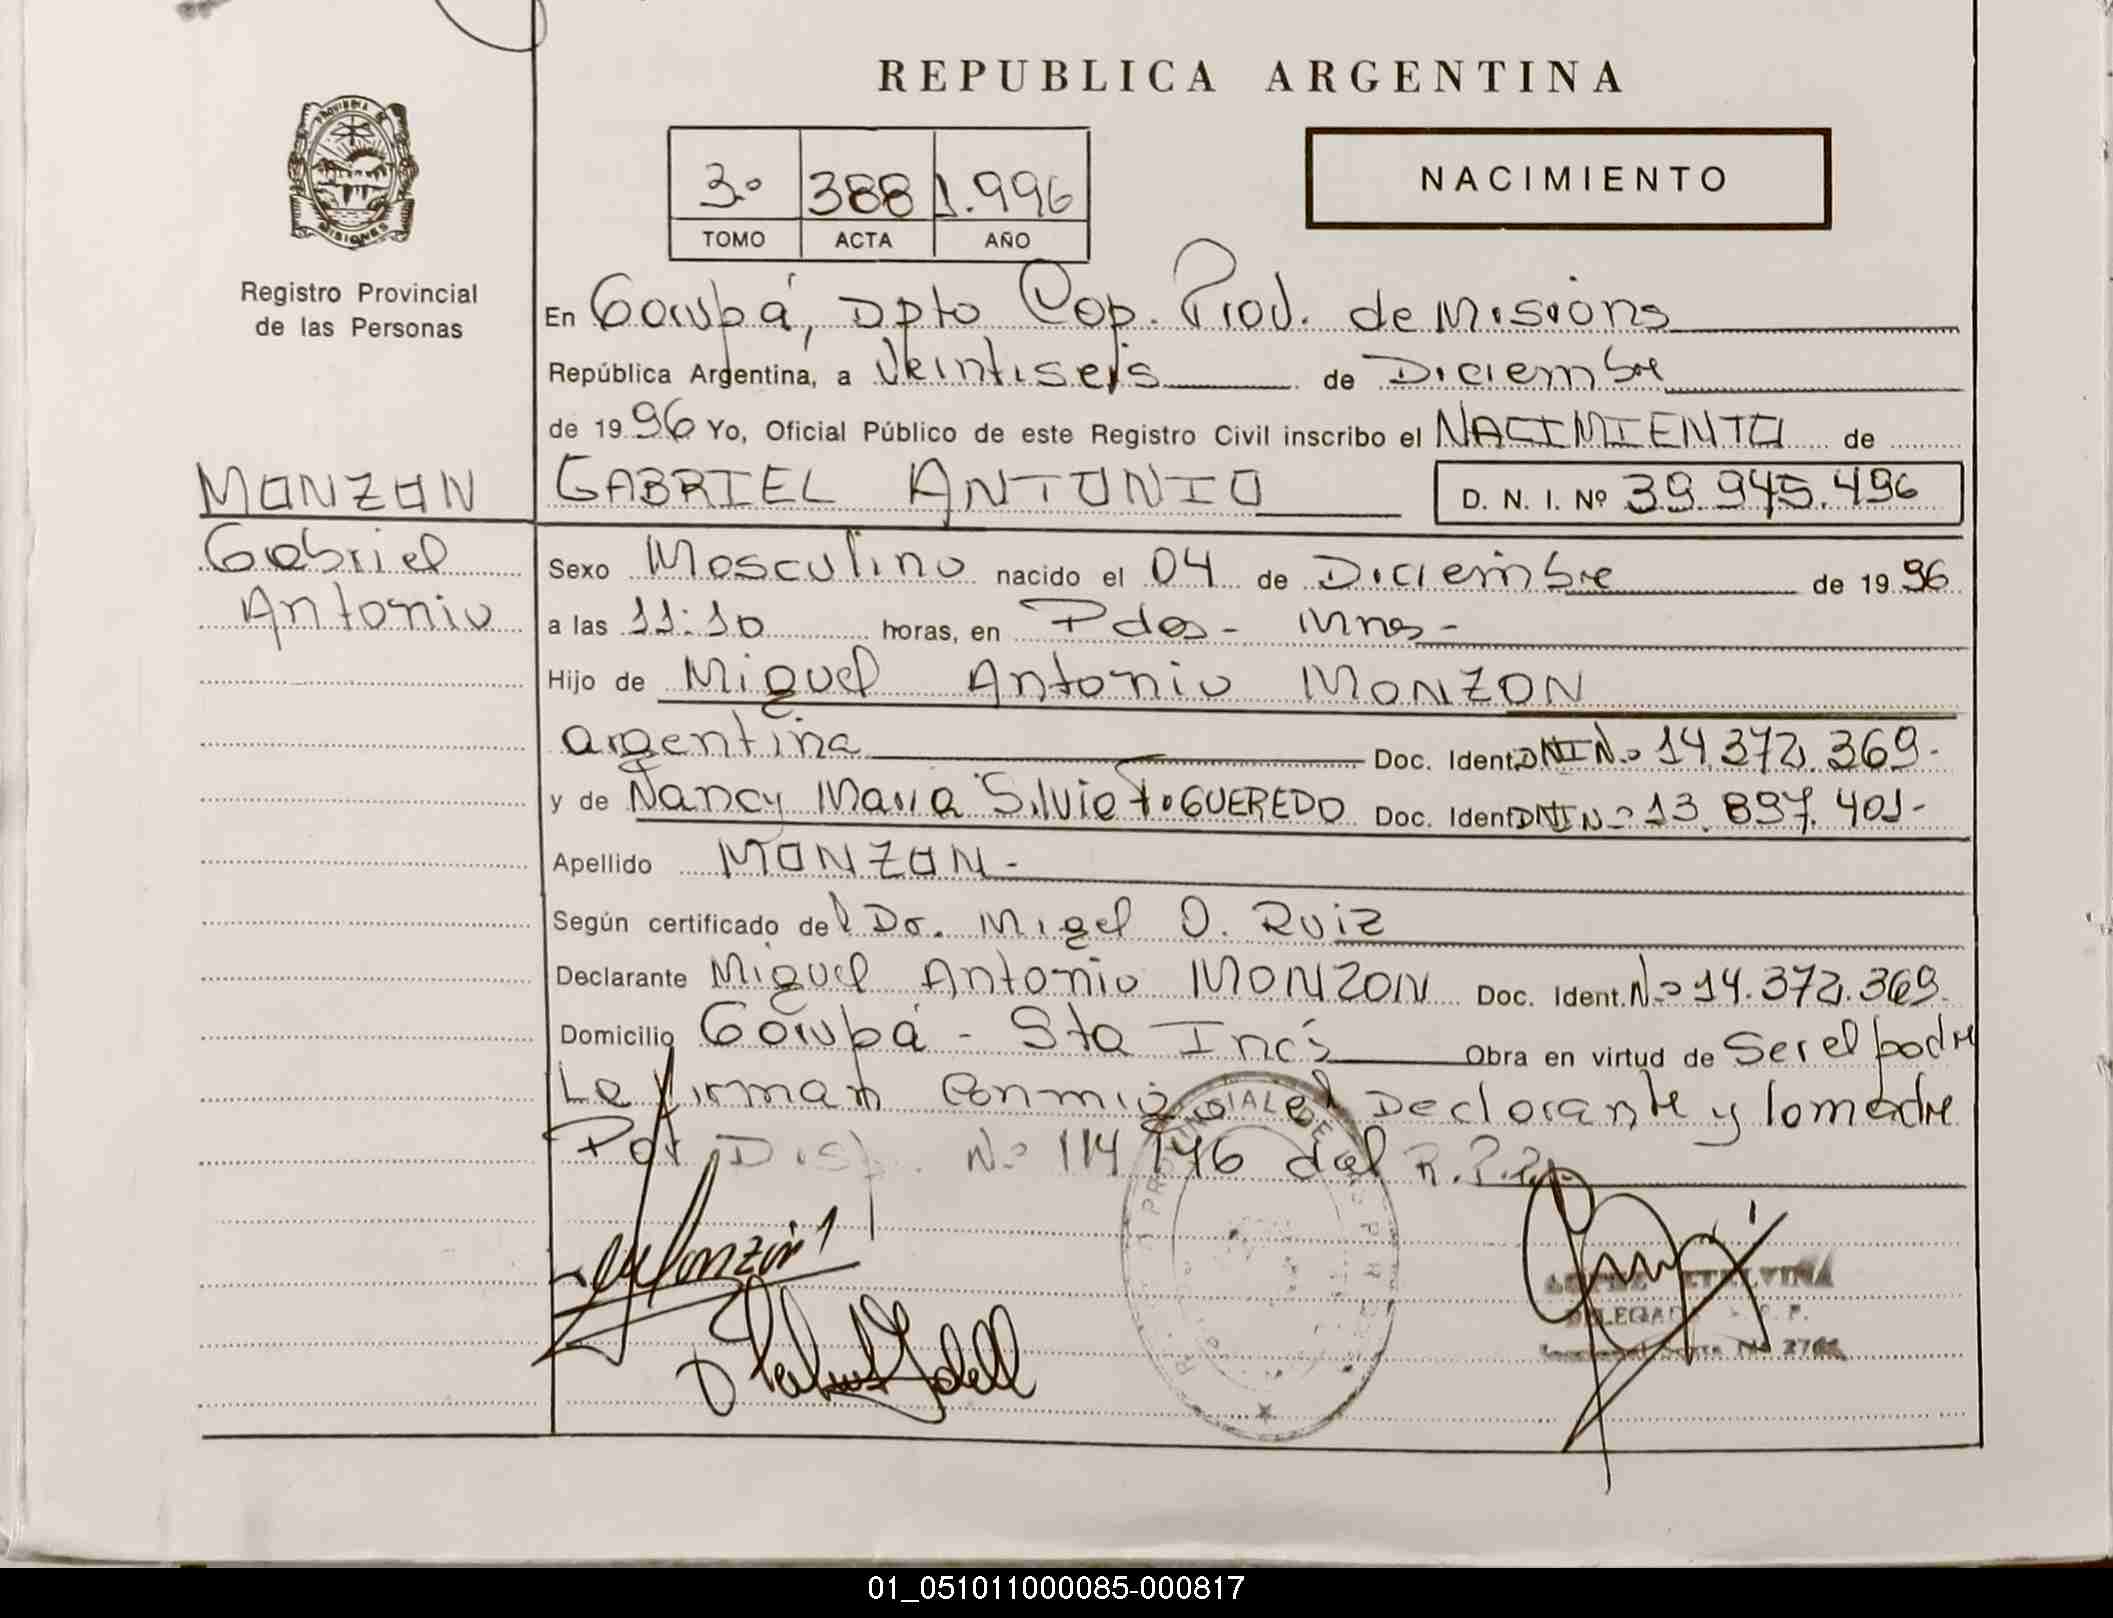 REPUBLICA ARGENTINA
PROVINCIA DE
MISIONES
Registro Provincial
de las Personas
3º 388 1.996
TOMO ACTA AÑO
NACIMIENTO
En Garupá, Dpto Cap. Prov. de Misions
República Argentina, a Veintiseis de Diciembre
de 1996 Yo, Oficial Público de este Registro Civil inscribo el NACIMIENTO de
MONZON GABRIEL ANTONIO D. N. I. Nº 39.945.496
Gabriel
Antonio
Sexo Masculino nacido el 04 de Diciembre de 1996
a las 11:10 horas, en Pdas - Mnes -
Hijo de Miguel Antonio MONZON
argentina Doc. Ident. DNI Nº 14.372.369-
y de Nancy Maria Silvia FIGUEREDO Doc. Ident. DNI Nº 13.897.401-
Apellido MONZON-
Según certificado del Dr. Migel O. Ruiz
Declarante Miguel Antonio MONZON Doc. Ident. Nº 14.372.369.
Domicilio Garupá - Sta Inés Obra en virtud de Ser el padre
La firman conmigo el Declarante y la madre
Por Disp. Nº 114/96 del R.P.P.
DELEGADA
01_051011000085-000817